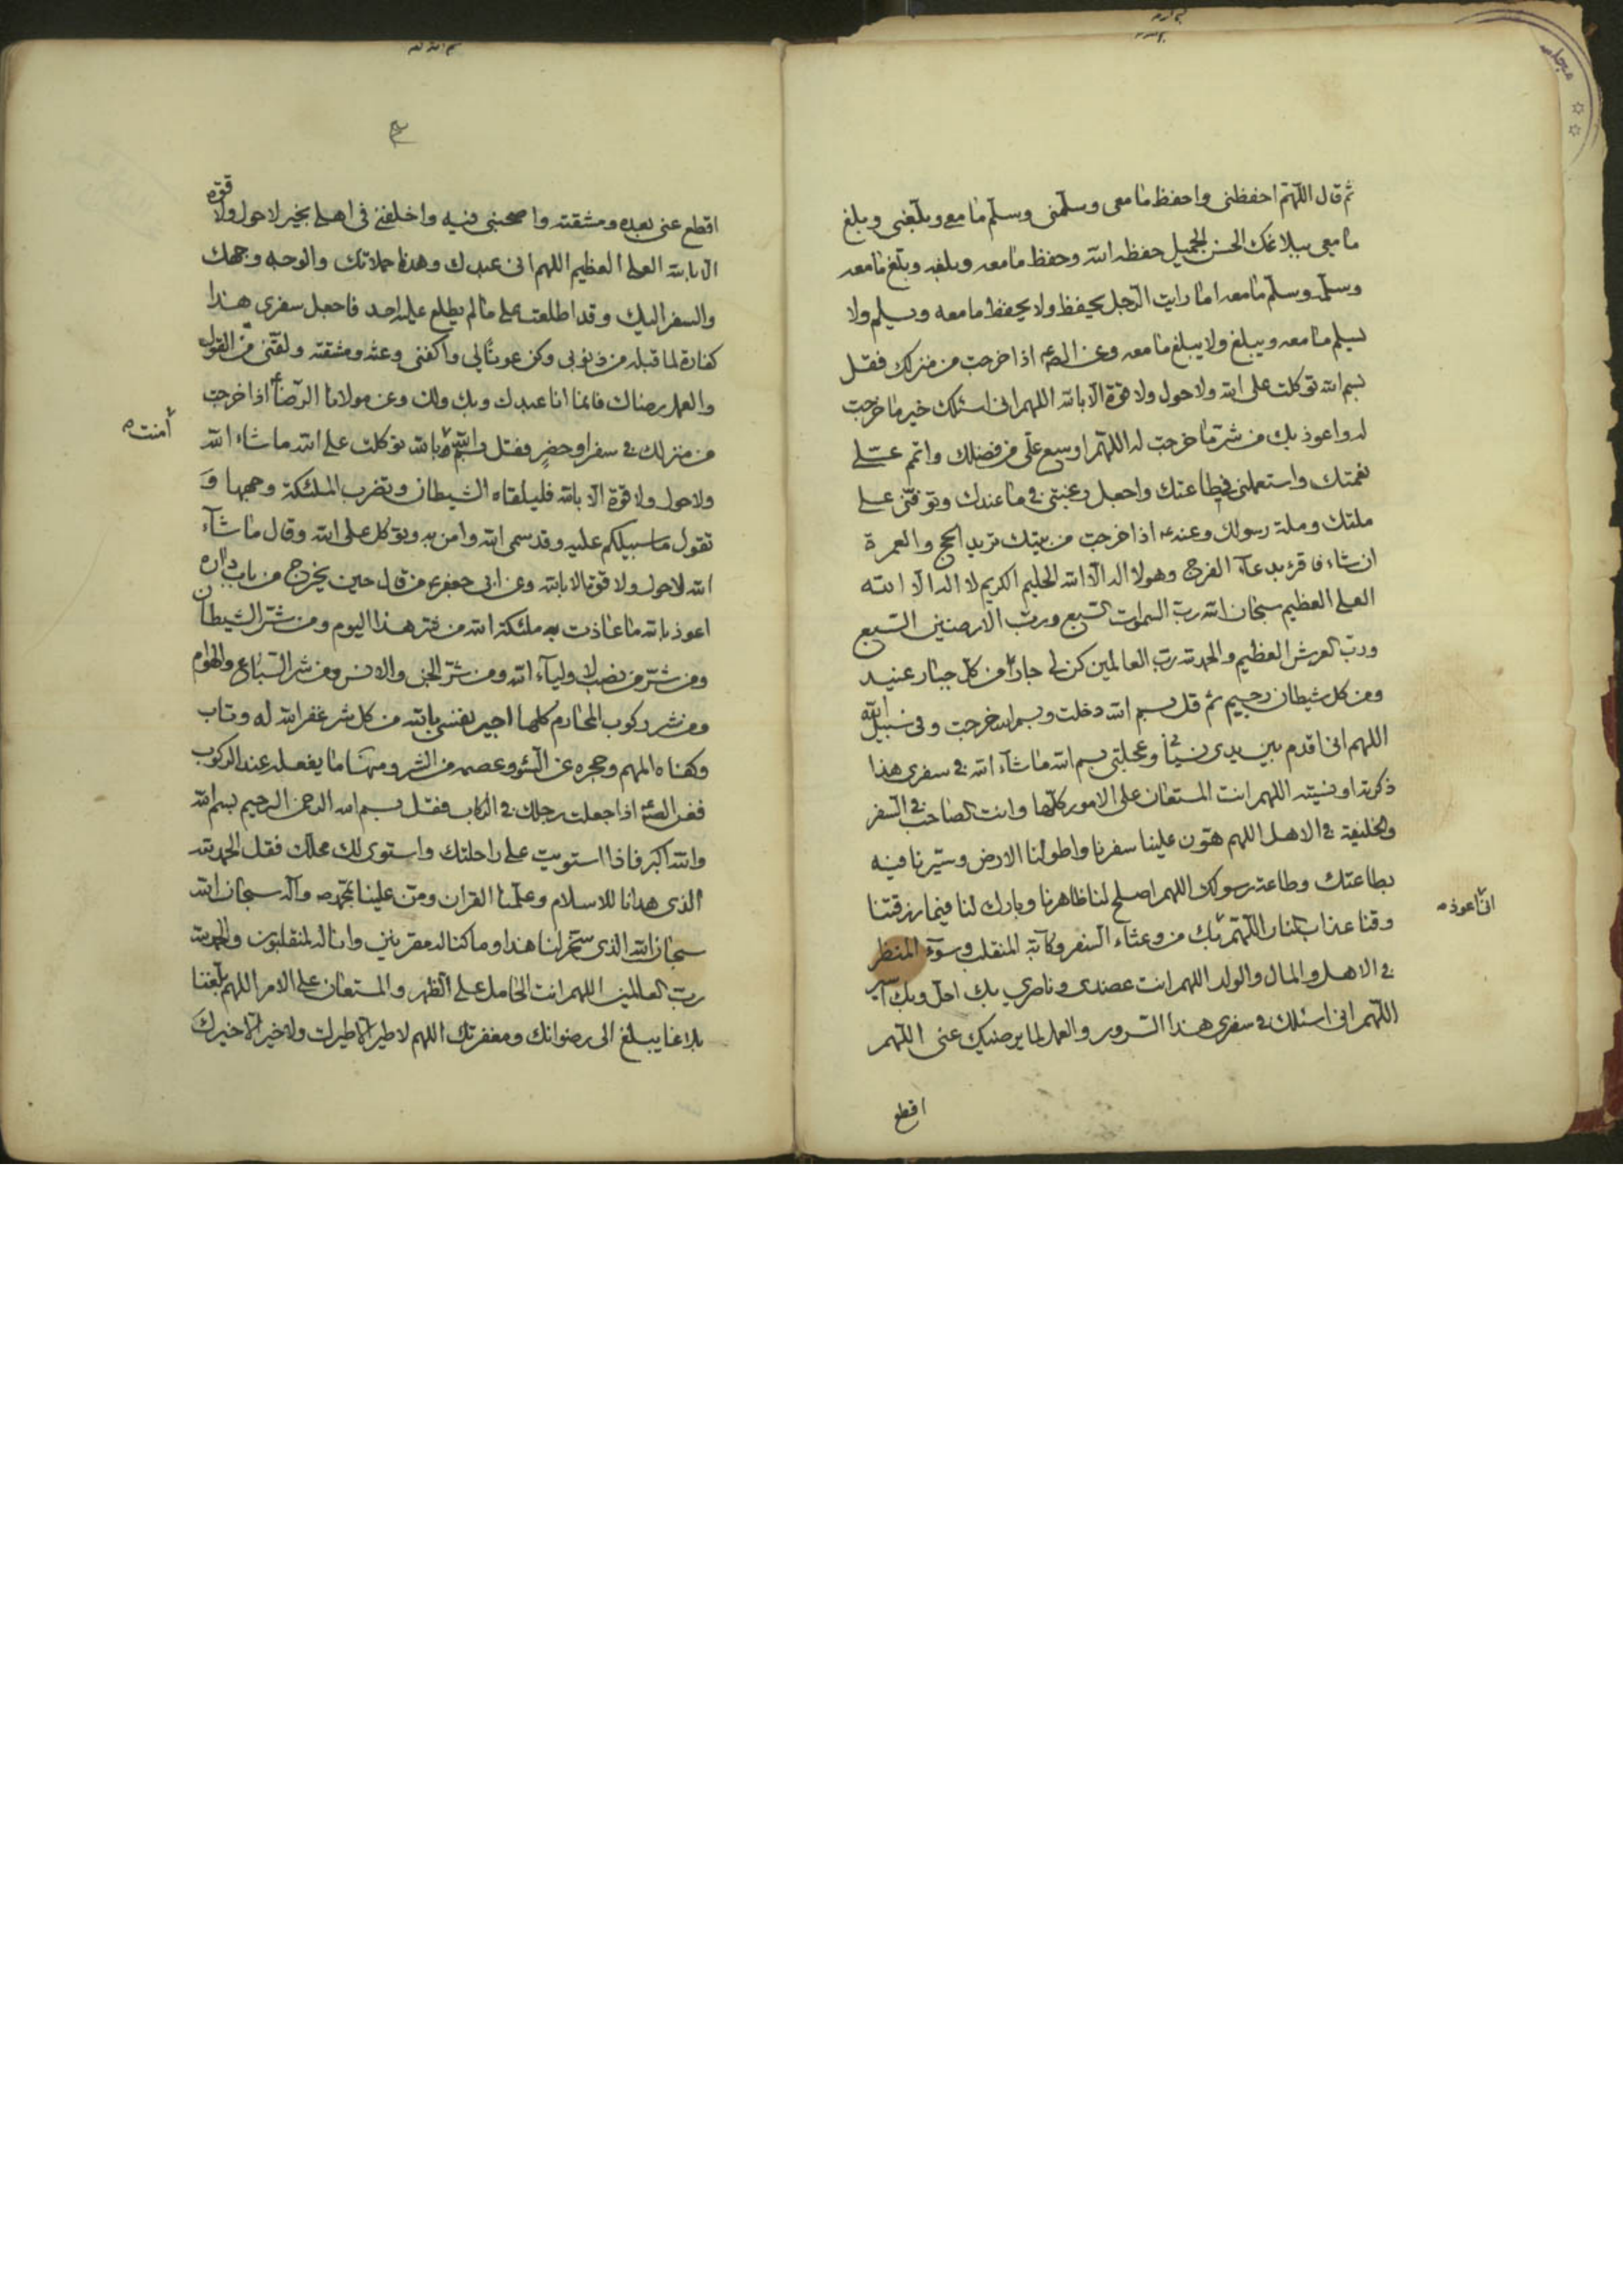 ثم قال اللهم احفظنى واحفظ ما معى وسلمنى وسلم ما معى وبلغنى وبلغ
ما معى ببلاغك الحسن الجميل حفظه الله وحفظ ما معه وبلغه وبلغ ما معه
وسلمه وسلم ما معه اما رايت الرجل يحفظ ولا يحفظ ما معه ويسلم ولا
يسلم ما معه ويبلغ ولا يبلغ ما معه وعن الصم اذا خرجت من منزلك فقل
بسم الله توكلت على الله ولا حول ولا قوة الا بالله اللهم انى اسئلك خير ما خرجت
له واعوذ بك من شر ما خرجت له اللهم اوسع على من فضلك واتمم على
نعمتك واستعملنى في طاعتك واجعل رغبتى في ما عندك وتوفنى على
ملتك وملة رسولك وعنه ع اذا خرجت من بيتك تريد الحج والعمرة
ان شاء فاقرء بدعاء الفرج وهو لا اله الا الله الحليم الكريم لا اله الا الله
العلى العظيم سبحان الله رب السموات السبع ورب الارضين السبع
ورب العرش العظيم والحمد لله رب العالمين كن لى جارا من كل جبار عنيد
ومن كل شيطان رجيم ثم قل بسم الله دخلت وبسم الله خرجت وفى سبيل الله
اللهم انى اقدم بين يدى نسيانى وعجلتى بسم الله ما شاء الله في سفرى هذا
ذكرته او نسيته اللهم انت المستعان على الامور كلها وانت الصاحب في السفر
والخليفة في الاهل اللهم هون علينا سفرنا واطو لنا الارض وسيرنا فيه
بطاعتك وطاعة رسولك اللهم اصلح لنا ظاهرنا وبارك لنا فيما رزقتنا
وقنا عذاب النار اللهم بك من وعثاء السفر وكآبة المنقلب وسوء المنظر
انى اعوذ
في الاهل والمال والولد اللهم انت عضدى وناصرى بك احل وبك اسير
اللهم انى اسئلك في سفرى هذا السرور والعمل لما يرضيك عنى اللهم
اقطع
اقطع عنى بعده ومشقته واصحبنى فيه واخلفنى فى اهلى بخير لا حول ولا قوة
الا بالله العلى العظيم اللهم انى عبدك وهذه حملاتك والوجه وجهك
والسفر اليك وقد اطلعت على ما لم يطلع عليه احد فاجعل سفرى هذا
كفارة لما قبله من ذنوبى وكن عونا لى واكفنى وعثه ومشقته ولقنى من القول
والعمل رضاك فانما انا عبدك وبك ولك وعن مولانا الرضا ع اذا خرجت
من منزلك في سفر او حضر فقل بسم الله بالله توكلت على الله ما شاء الله
امنت
ولا حول ولا قوة الا بالله فليلقاه الشيطان وتضرب الملئكة وجهها و
تقول ما سبيلكم عليه وقد سمى الله وامن به وتوكل على الله وقال ما شاء
الله لا حول ولا قوة الا بالله وعن ابى جعفر ع من قال حين يخرج من باب داره
اعوذ بالله ما عاذت به ملئكة الله من شر هذا اليوم ومن شر الشيطان
ومن شر من نصب لاولياء الله ومن شر الجن والانس ومن شر السباع والهوام
ومن شر ركوب المحارم كلها اجير نفسى بالله من كل شر غفر الله له وتاب
وكفاه المهم وحجره عن السوء وعصمه من الشر ومنها ما يفعله عند الركوب
فعن الصم اذا جعلت رجلك في الركاب فقل بسم الله الرحمن الرحيم بسم الله
والله اكبر فاذا استويت على راحلتك واستوى لك محملك فقل الحمد لله
الذى هدانا للاسلام وعلمنا القران ومن علينا بمحمد ص واله سبحان الله
سبحان الله الذى سخر لنا هذا وما كنا له مقرنين وانا له لمنقلبون والحمد لله
رب العالمين اللهم انت الحامل على الظهر والمستعان على الامر اللهم بلغنا
بلاغا يبلغ الى رضوانك ومغفرتك اللهم لا طير الا طيرك ولا خير الا خيرك